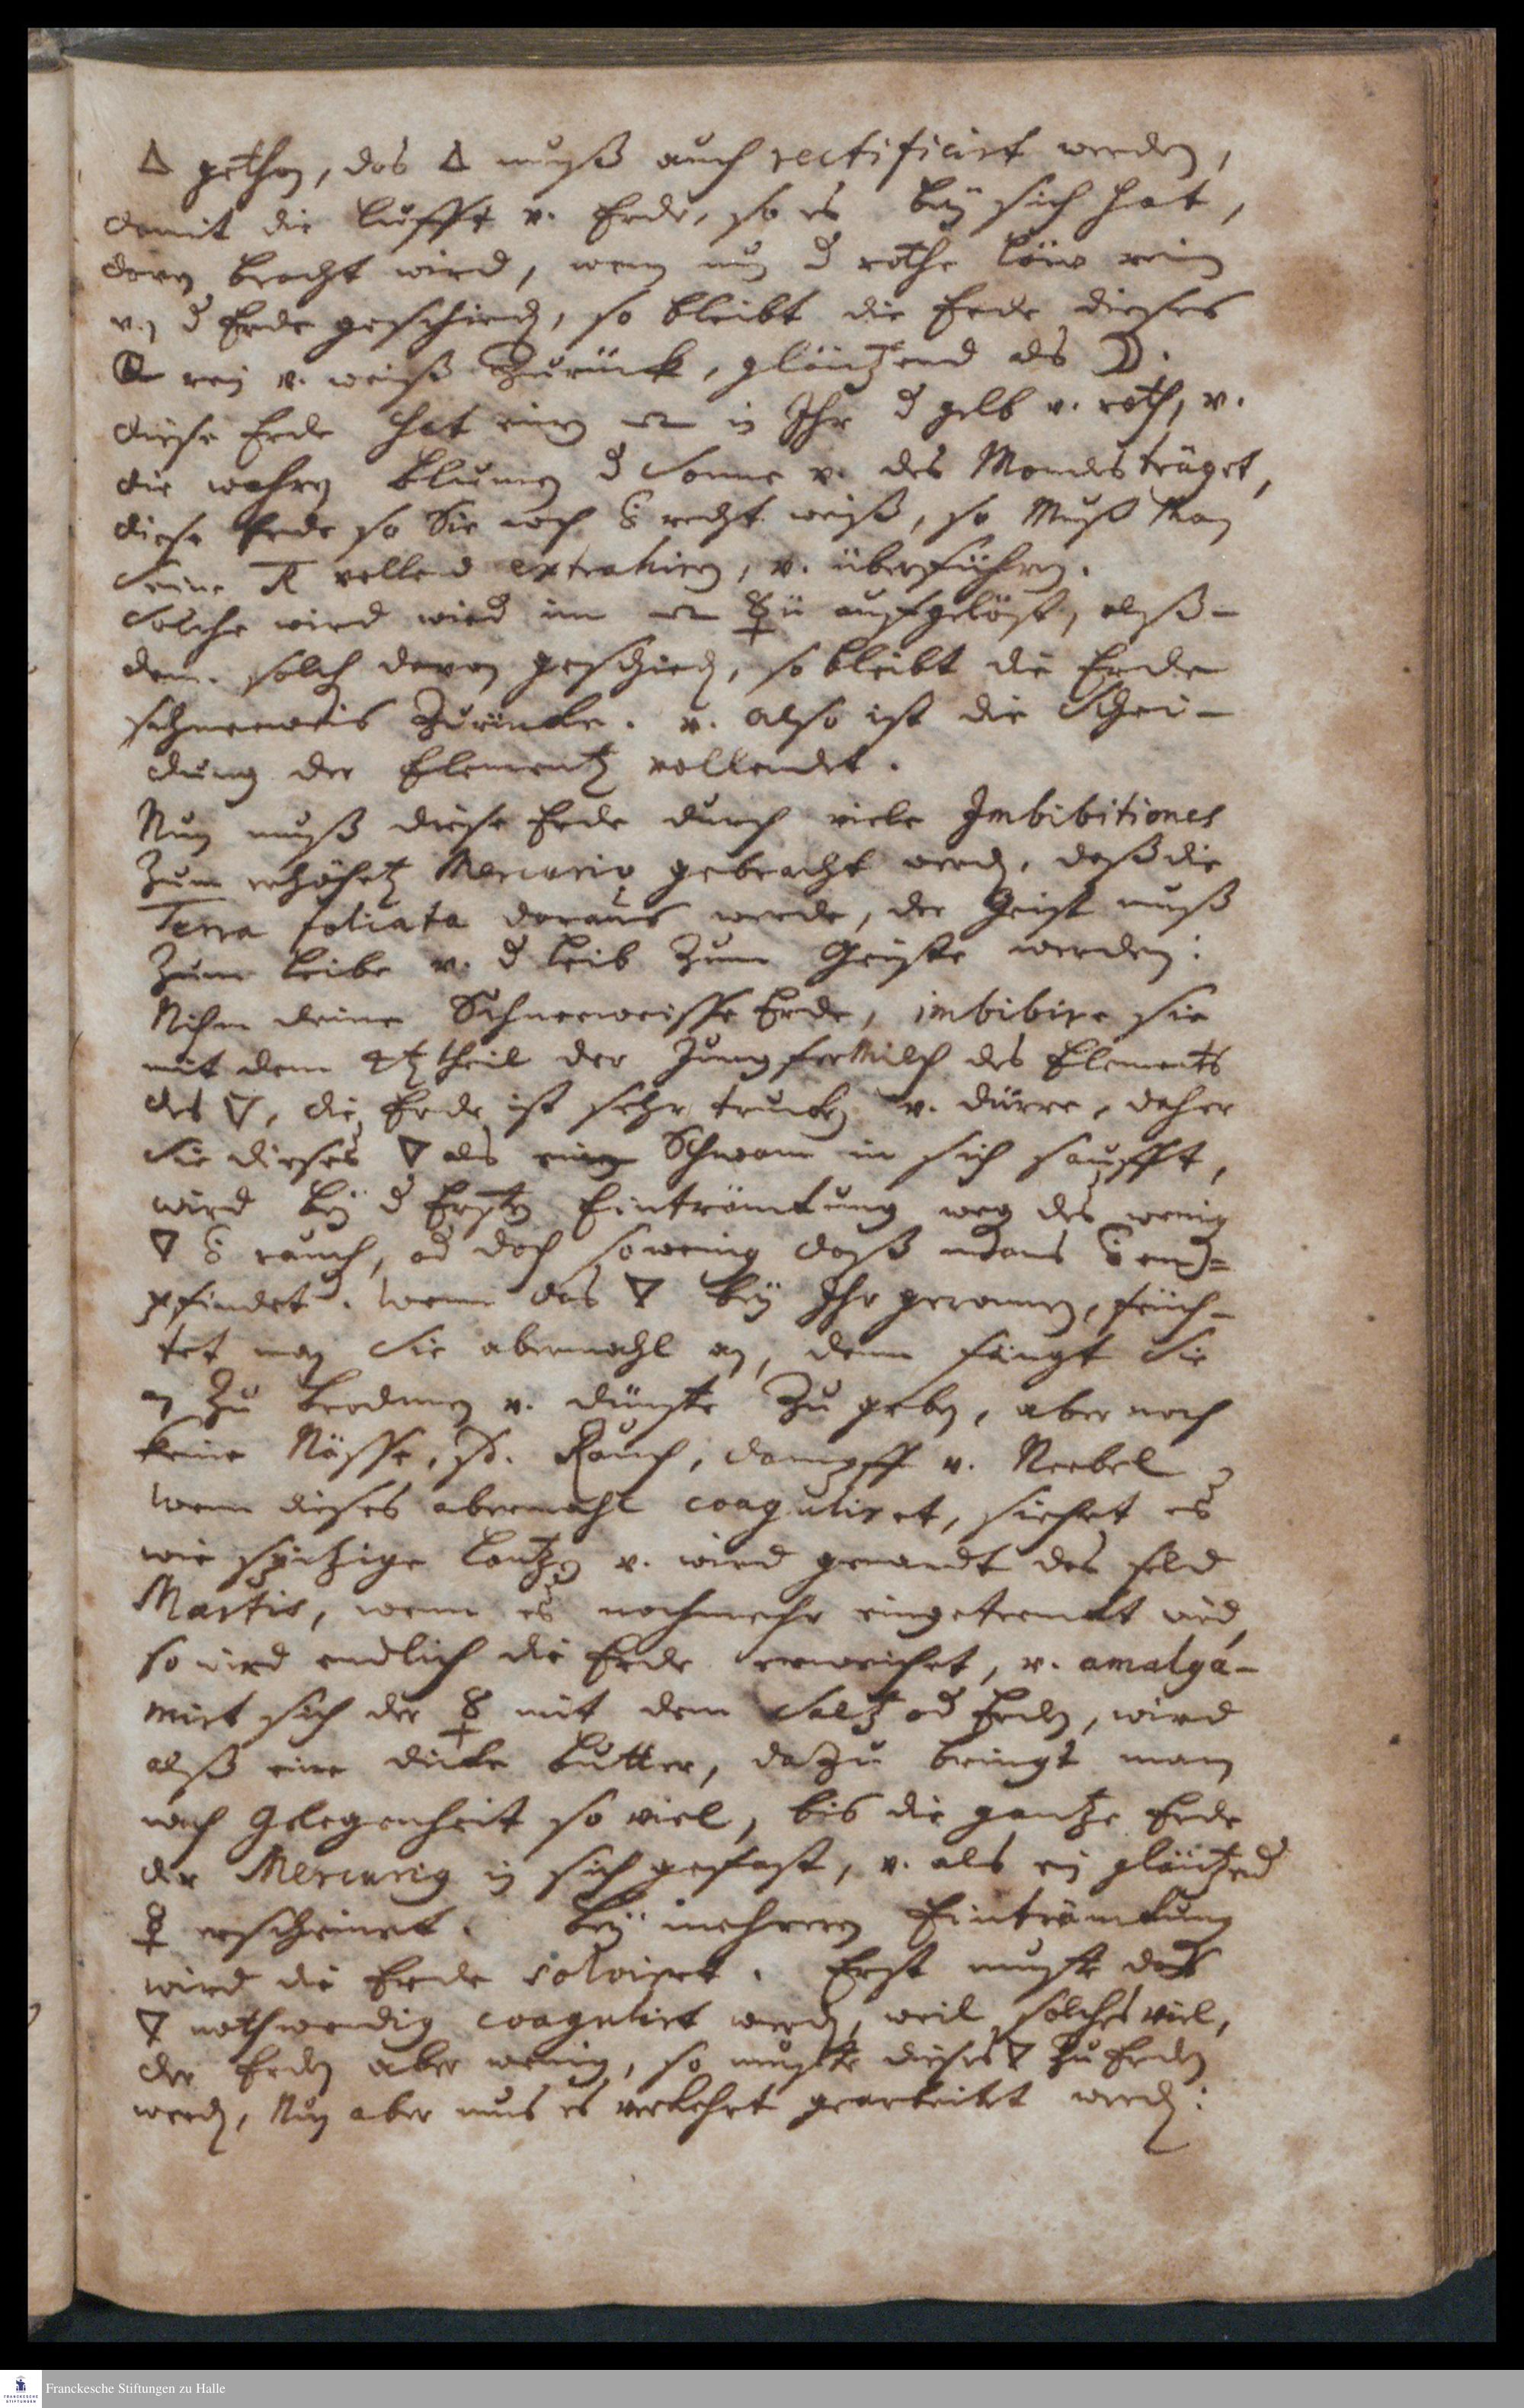 🜂 gethan, das 🜂 muß auch rectificirt werden,
damit die Lufft v. Erde, so es beÿ sich hat,
davon bracht wird, wenn nun d rothe Löw rein
v. d Erde geschieden, so bleibt die Erde dieses
rein v. weiß Zurück, gläntzend als ☽.
diese Erde hat einen in Ihr d gelb v. roth, v.
die wahren Blumen d Sonne v. des Mondes träget,
diese Erde so Sie noch recht weiß, so Muß Man
seine vollend extrahiren, v. überführen.
Solche wird wird im ☿ii auffgelöst, alß-
dan. solch davon geschieden, so bleibt die Erde
schneeweis Zurücke. v. also ist die Schei-
dung der Elementen vollendet.
Nun muß diese Erde durch viele Imbibitiones
Zum erhöheten Mercurio gebracht werden, daß die
Terra foliata daraus werde, der Geist muß
Zum Leibe v. d Leib Zum Geiste werden:
Nihm deine Schneeweisse Erde, imbibire sie
mit dem theil der JungferMilch des Elements
des 🜄, die Erde ist sehr trucken v. dürre, daher
Sie dieses 🜄 als einen Schwam in sich saufft,
wird beÿ d Ersten Einträmkung weg des wenig
🜄 rauch, od doch so wenig daß em=
pfindet. Wenn das 🜄 beÿ Ihr geronnen, feuch-
tet man Sie abermahl an, denn fängt Sie
an Zu brodmen v. dünste Zu geben, aber noch
keine Nässe, Rauch, dampff v. Neebel
Wenn dieses abermahl coaguliret, siehet es
wie spitzige Lantzen v. wird genandt des feld
Martis, wenn es nochmehr eingetrenkt wird,
so wird endlich die Erde erweichet, v. amalga-
mirt sich der ☿ mit dem Saltz od Erden, wird
alß eine dicke Butter, dazu bringt man
nach Gelegenheit so viel, bis die gantze Erde
der Mercurig in sich gefast, v. als ein gläntzend
☿ erscheinet. Beÿ mehreren Einträmkung
wird die Erde solviret. Erst muste das
🜄 nothwendig coagulirt werden, weil solches viel,
der Erden aber wenig, so muste dieses 🜄 Zu Erden
werden, Nun aber mus es verkehrt gearbeitet werden:
Franckesche Stiftungen zu Halle